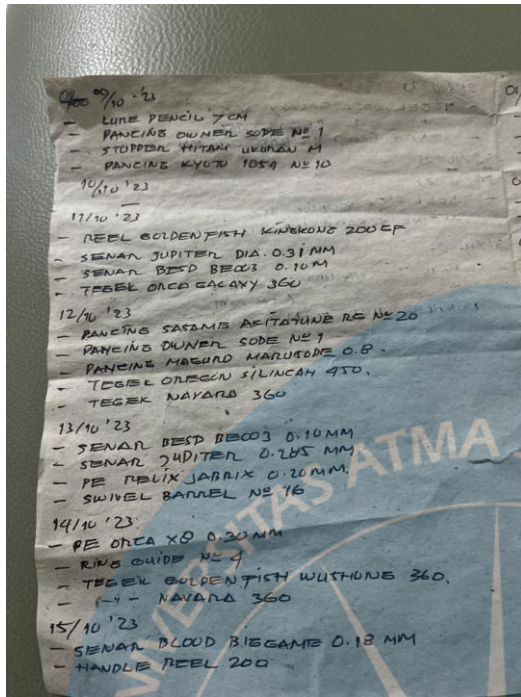 09/10 '23
- LURE PENCIL 7 CM
- PANCING OWNER SODE Nº 1
- STOPPER HITAM UKURAN M
- PANCING KYOTO 1054 Nº 10
10/10 '23
—
11/10 '23
- REEL GOLDENFISH KINGKONG 200
- SENAR JUPITER DIA. 0.31 MM
- SENAR BESD BECO3 0.10 M
- TEGEK ORCA GALAXY 360
12/10 '23
- PANCING SASAME AKITAJUNE RG Nº 20
- PANCING OWNER SODE Nº 1
- PANCING MAGURO MARUSODE 0.8.
- TEGEK OREGON SILINCAH 450.
- TEGEK NAVARA 360
13/10 '23
- SENAR BESD BECO3 0.10 MM
- SENAR JUPITER 0.285 MM
- PE RELIX JABRIX 0.20 MM.
- SWIVEL BARREL Nº 16
14/10 '23
- PE ORCA X8 0.30 MM
- RING GUIDE Nº 4
- TEGEK GOLDENFISH WUSHUNG 360.
- –"– NAVARA 360
15/10 '23
- SENAR BLOOD BIGGAME 0.18 MM
- HANDLE REEL 200
NIVERSITAS ATMA